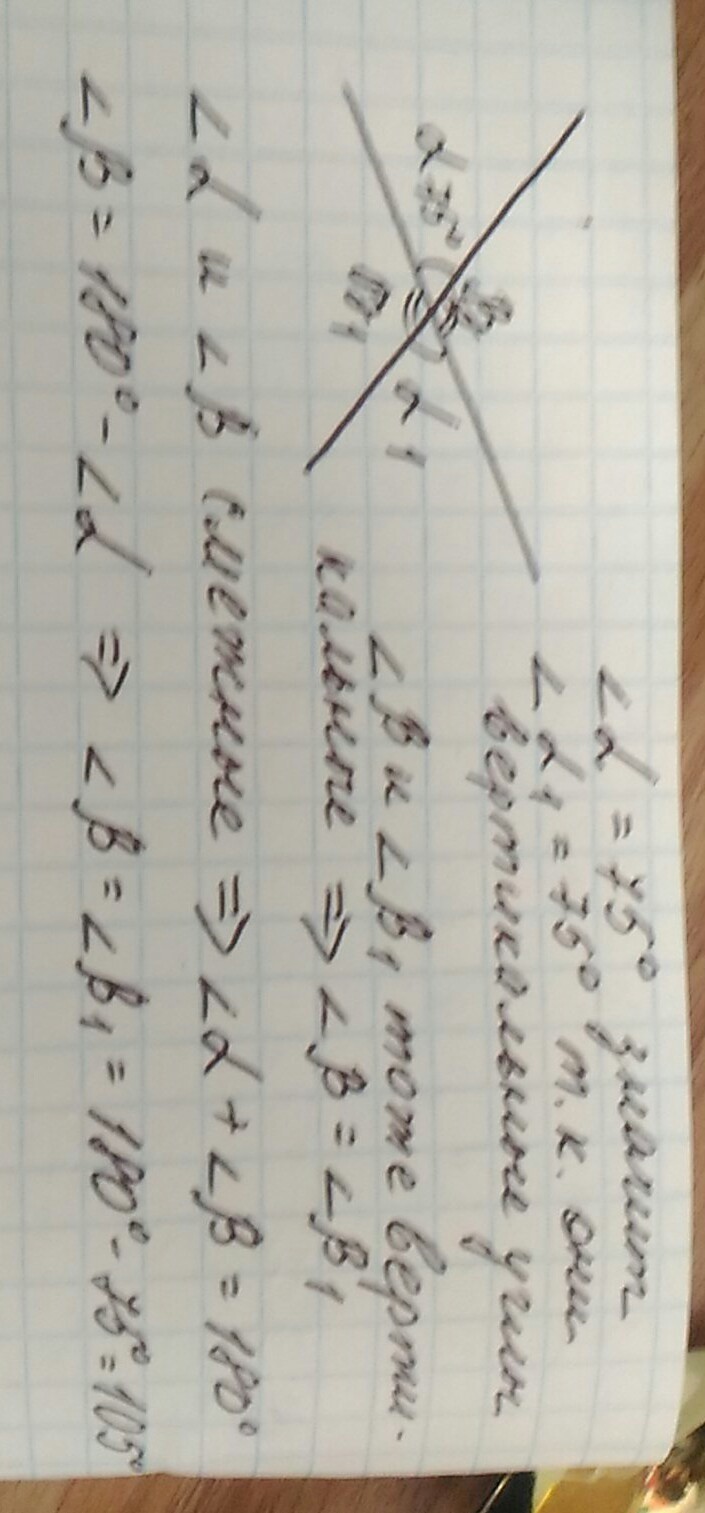 ∠α = 75° значит
∠α₁ = 75° т.к. они
вертикальные углы
∠β и ∠β₁ тоже верти-
кальные => ∠β = ∠β₁
α 75°
β
β₁
α₁
∠α и ∠β смежные => ∠α + ∠β = 180°
∠β = 180° - ∠α => ∠β = ∠β₁ = 180° - 75° = 105°